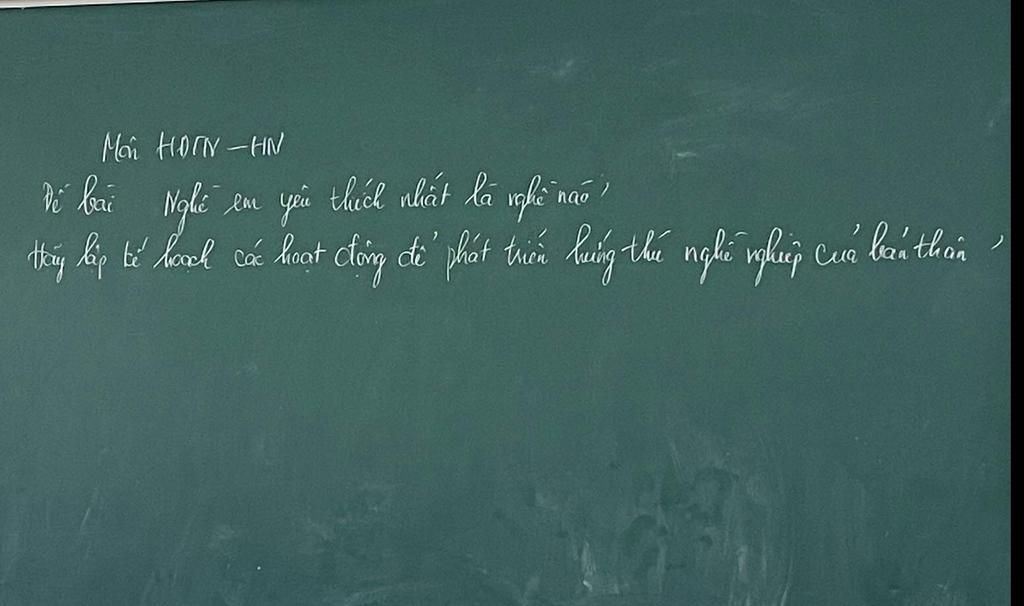 Môn HĐTN - HN
Đề bài Nghề em yêu thích nhất là nghề nào?
Hãy lập kế hoạch các hoạt động để phát triển hứng thú nghề nghiệp của bản thân?